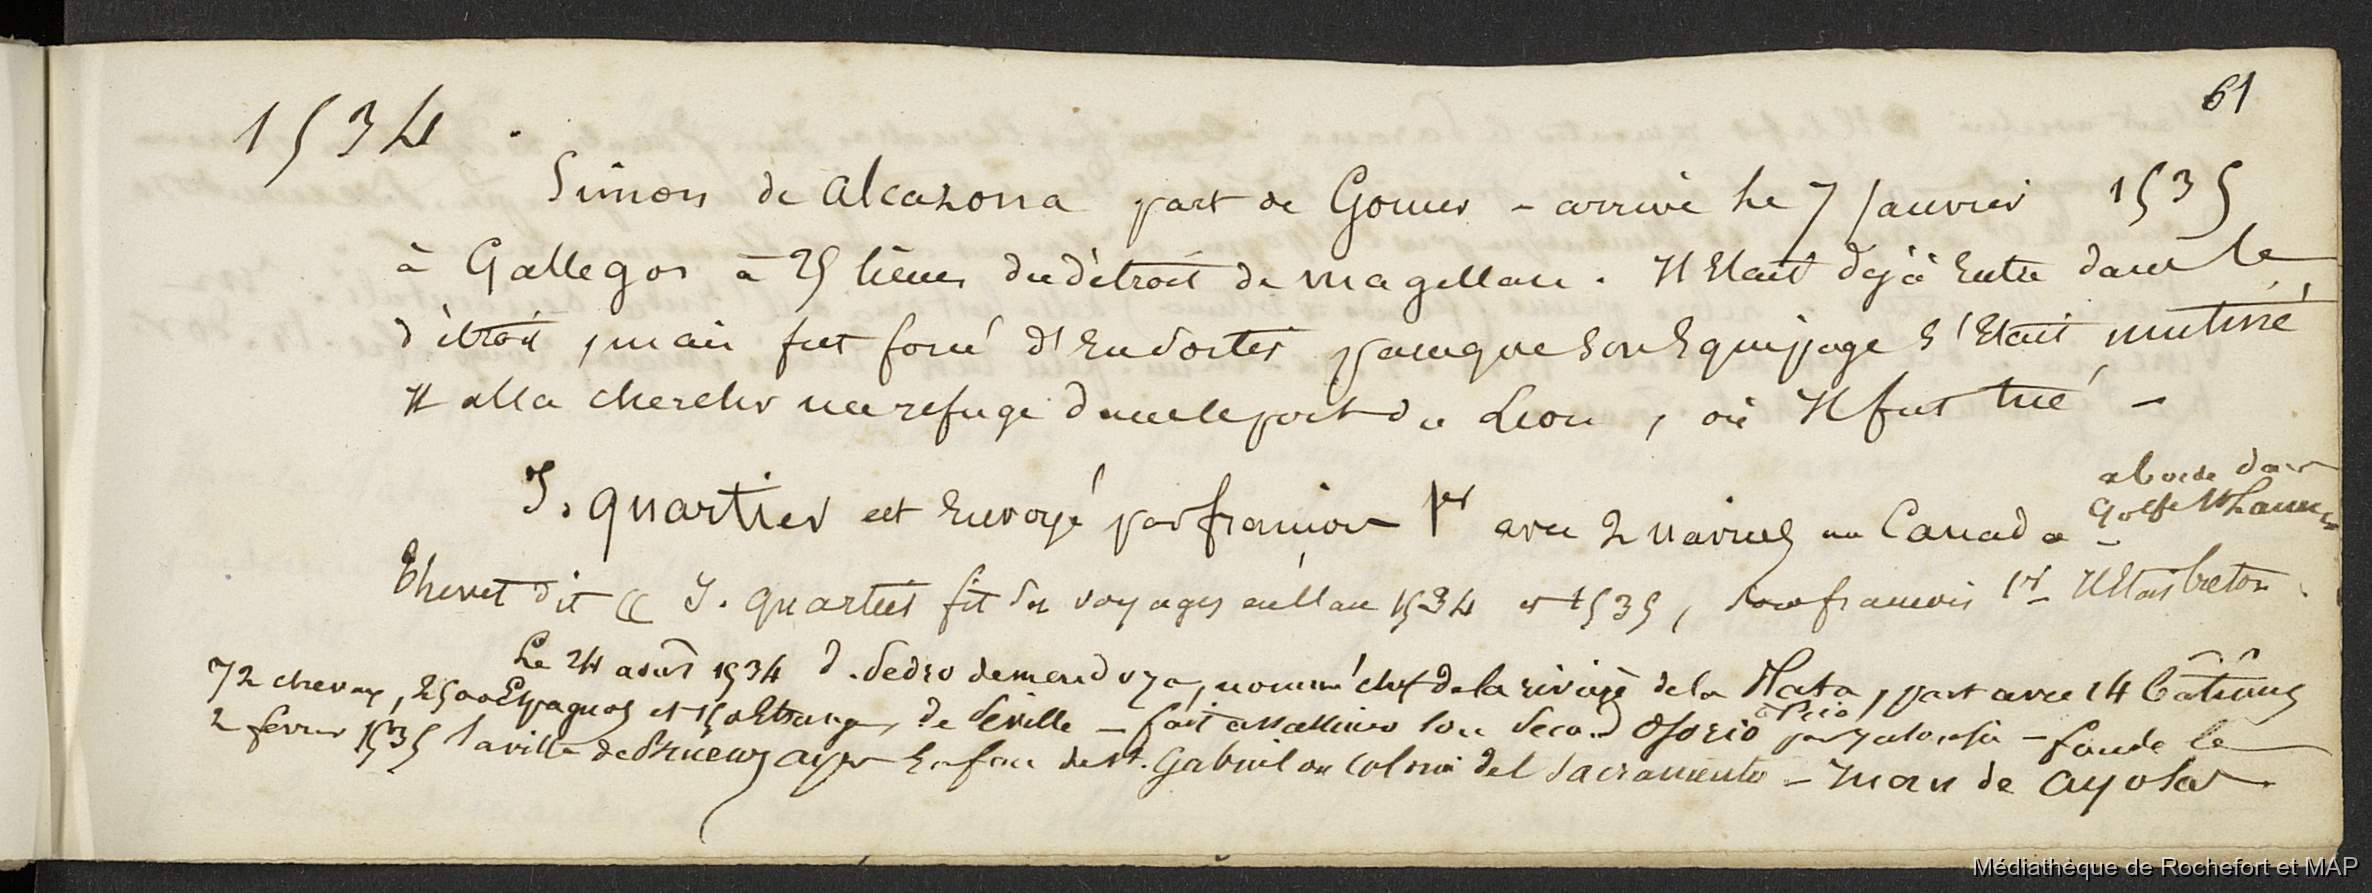 61
1534.
Simon de Alcazona part de Gomer - arrive le 7 Janvier 1535
à Gallegos à 25 lieues du détroit de Magellan. Il Etait déjà Entré dans le
détroit, mais fut forcé d'En Sortir parceque Son Equipage s'Etait mutiné,
Il alla chercher un refuge dans le port du Lion, où Il fut tué -
J. quartier est Envoyé par francois 1er avec 2 navires au Canada - aborde dans
Golfe St Laurent
Thevet dit « J. quartier fit des voyages en l'an 1534 et 1535, sous francois 1er Il Etait breton.
Le 24 août 1534 d. Pedro de mendoza, nommé chef de la rivière de la Plata, part avec 14 bâtimens
72 chevaux, 2500 Espagnols et 150 Etrangers de Séville - fait assassiner son Second Osorio par jalousie - fonde le
2 fevrier 1535 la ville de Buenos ayres En face de St. Gabriel ou Colonia del Sacramento - Juan de Ayolas
Médiathèque de Rochefort et MAP